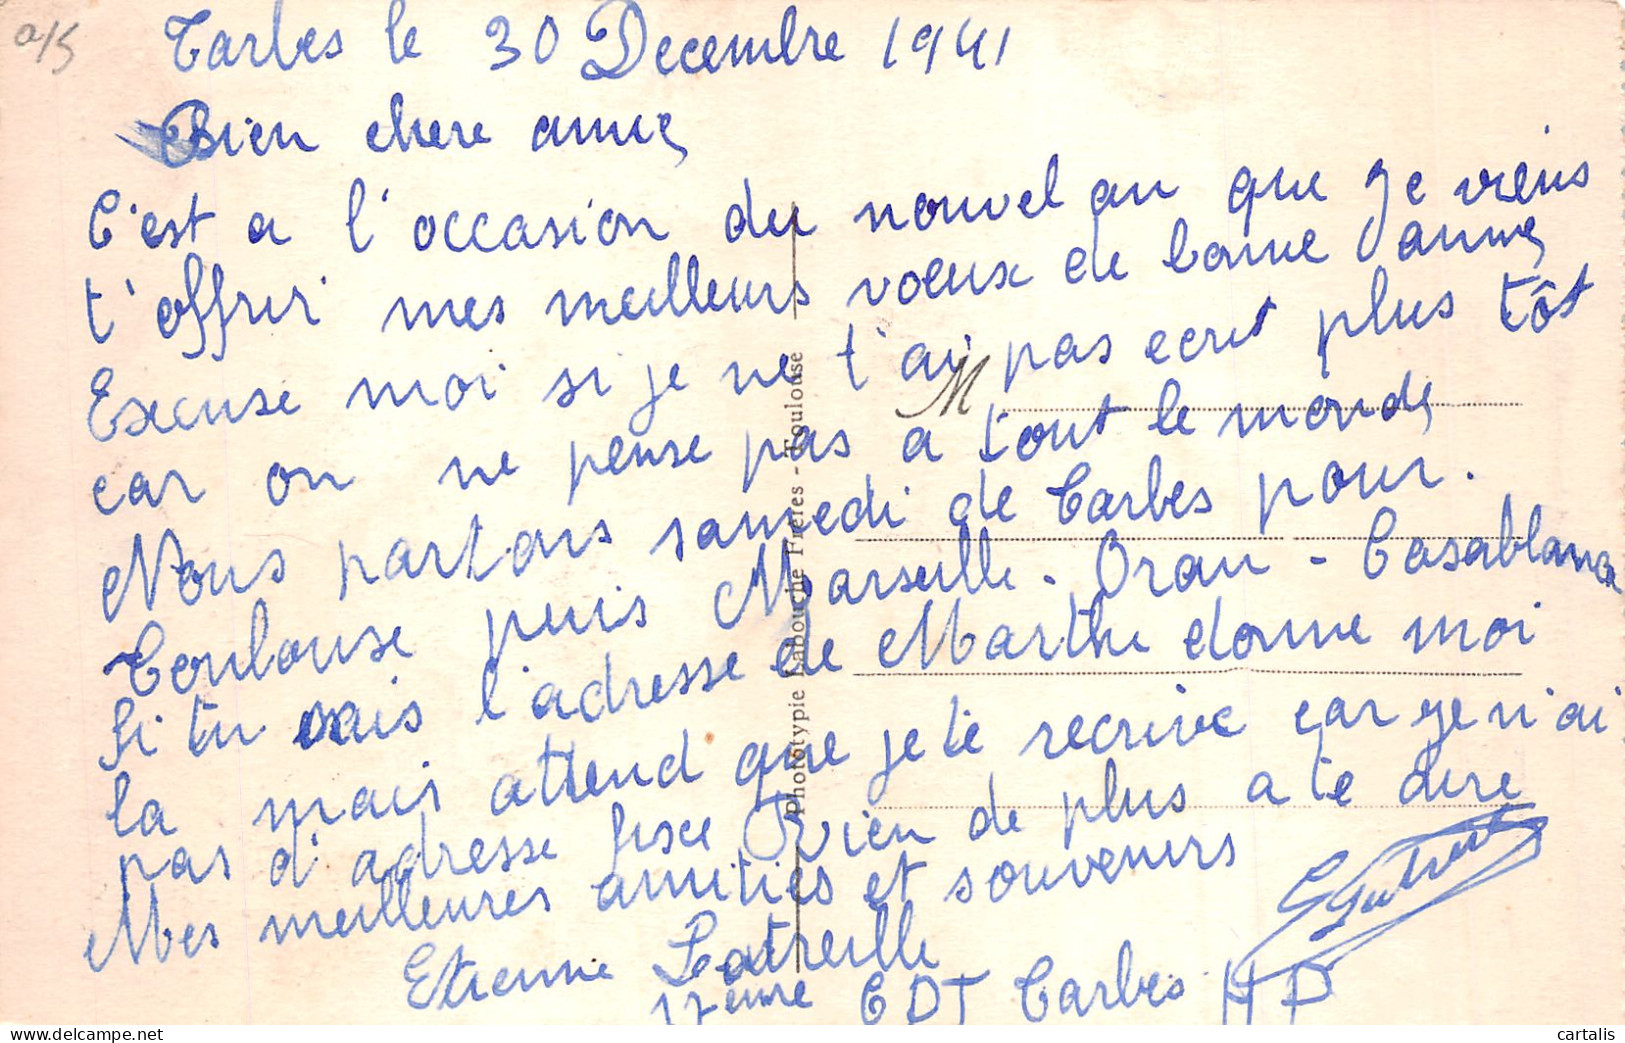 a/5
Tarbes le 30 Decembre 1941
Bien chere amie
C'est a l'occasion du nouvel an que je viens
t'offrir mes meilleurs voeux de bonne année
Excuse moi si je ne t'ai pas ecrit plus tôt
M
car on ne pense pas a tout le monde
Nous partons samedi de Tarbes pour.
Toulouse puis Marseille - Oran - Casablanca
Si tu sais l'adresse de Marthe donne moi
la mais attend que je te recrive car je n'ai
pas d'adresse fixe Rien de plus a te dire
Mes meilleures amitiés et souvenirs
Etienne Latreille
17eme CDT Tarbes HP
Phototypie Labouche Frères - Toulouse
cartalis